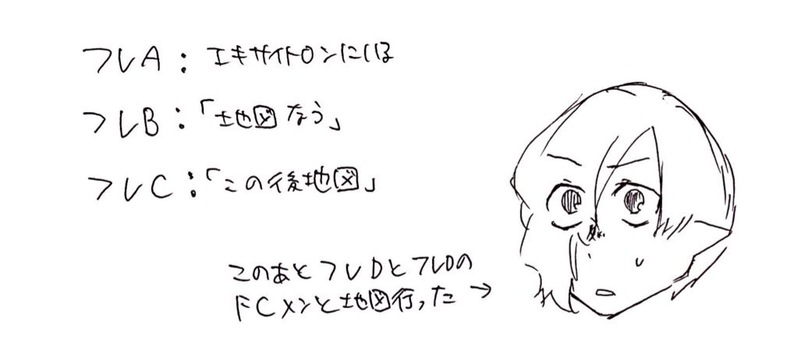 フレA:エキサイトロンにしは
フレB:「地図なう」
フレC:「この後地図」
このあとフレDとフレDの
FCメンと地図行った→